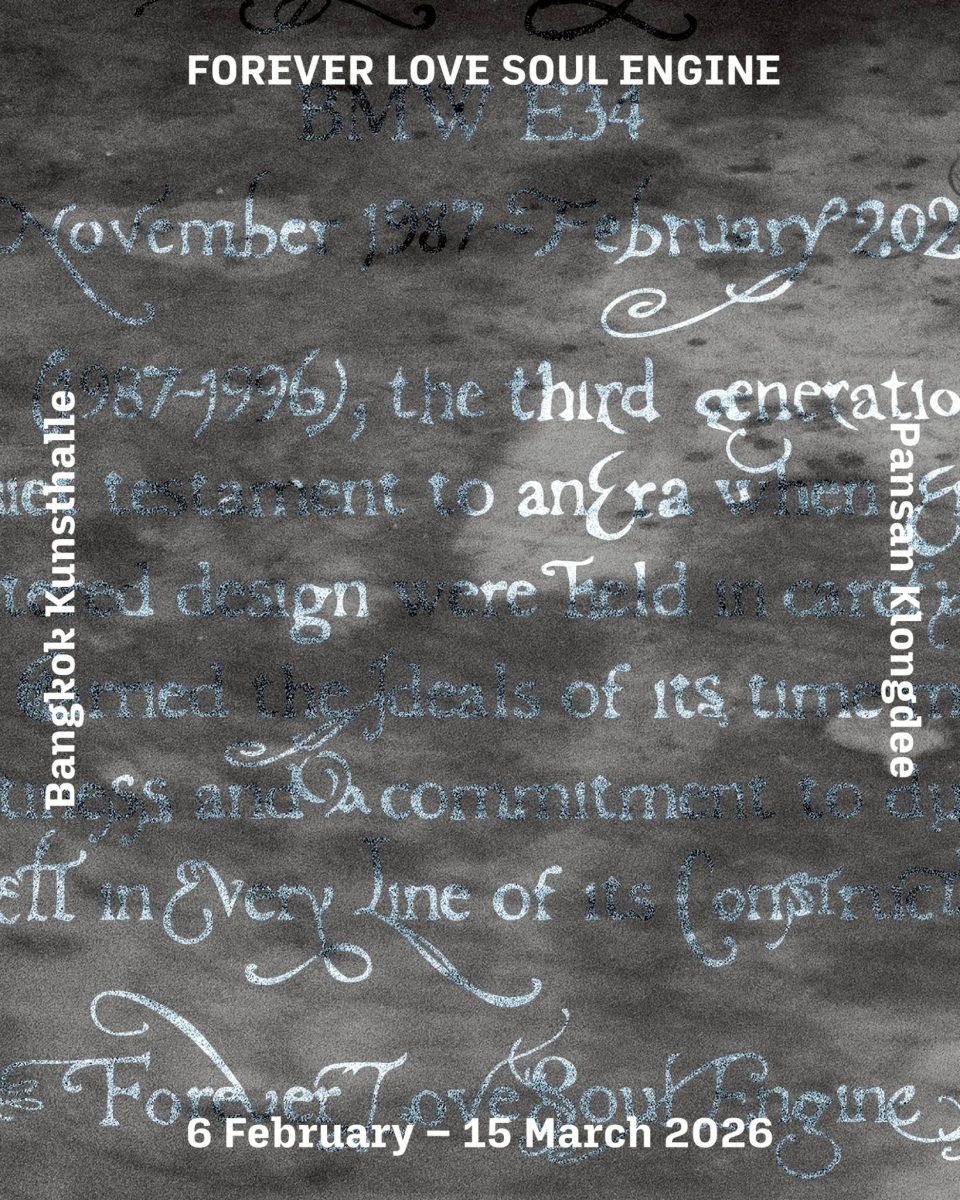 FOREVER LOVE SOUL ENGINE
BMW E34
November 1987 – February 202
(1987-1996), the third generatio
testament to an Era when
design were held in
Carried the Ideals of its time
and a commitment to
in Every Line of its Construct
Forever Love Soul Engine
Bangkok Kunsthalle
Pamsan Klongdee
6 February – 15 March 2026